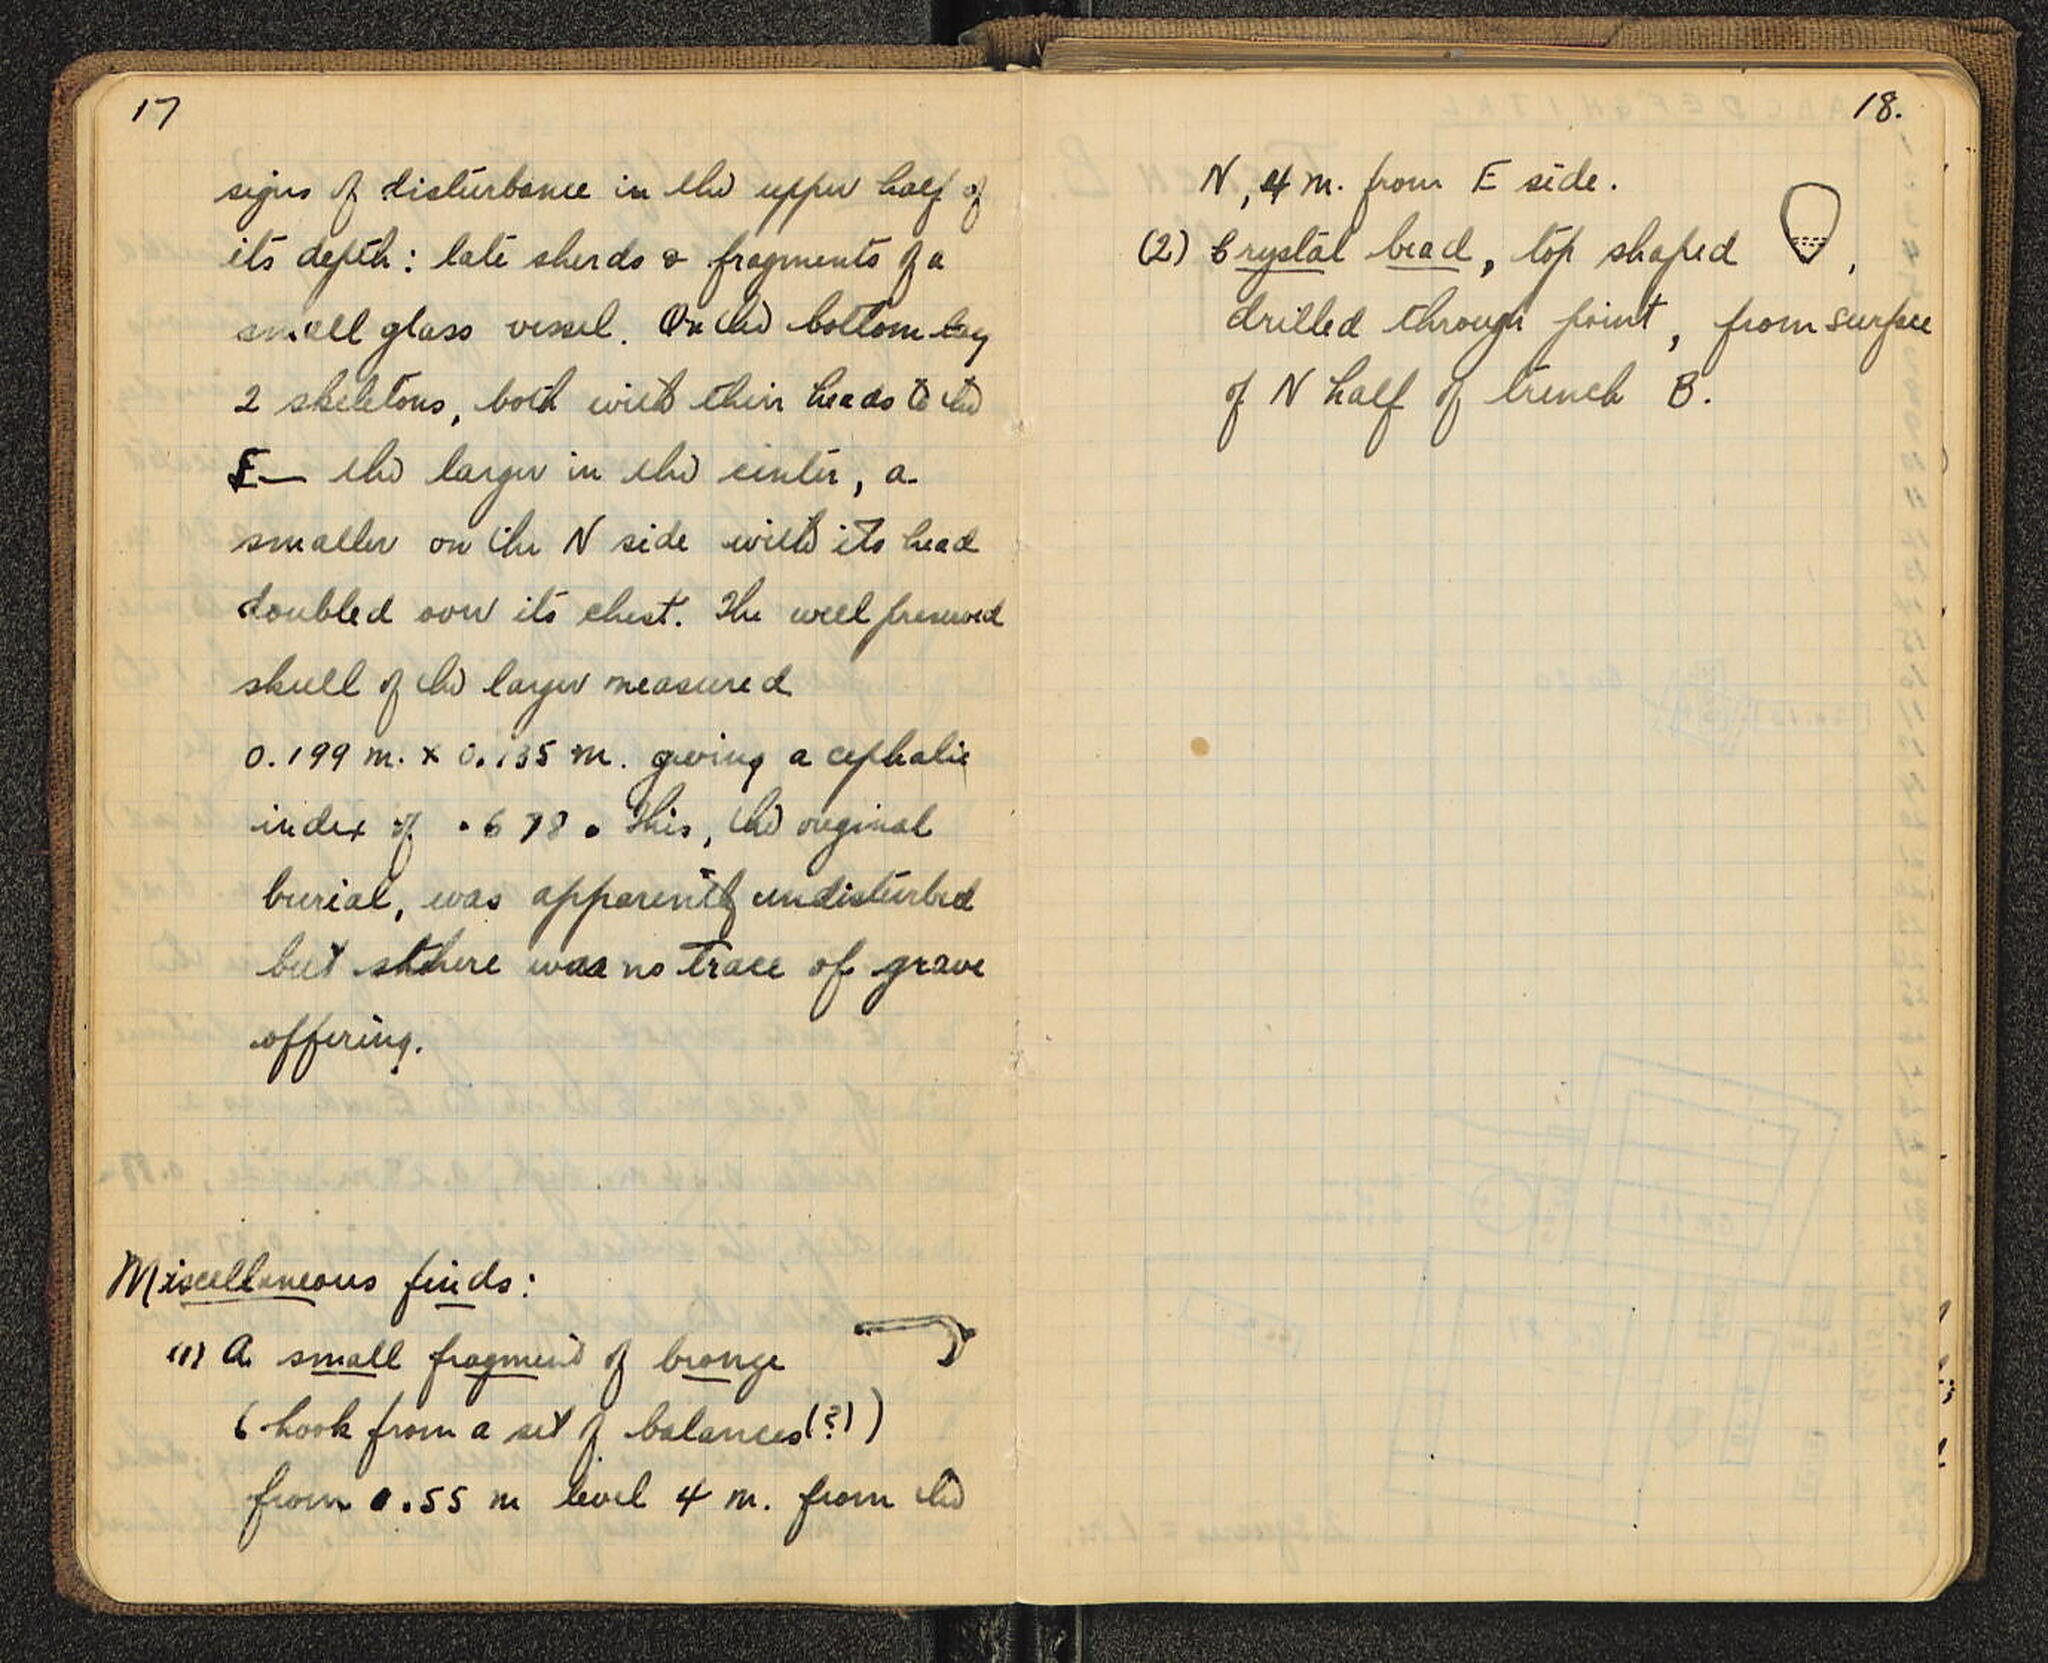 17
signs of disturbance in the upper half of
its depth: late sherds & fragments of a
small glass vessel. On the bottom lay
2 skeletons, both with their heads to the
E — the larger in the center, a
smaller on the N side with its head
doubled over its chest. The well preserved
skull of the larger measured
0.199 m. x 0.135 m. giving a cephalic
index of .678. This, the original
burial, was apparently undisturbed
but there was no trace of grave
offering.
Miscellaneous finds:
(1) A small fragment of bronze
(hook from a set of balances (?))
from 0.55 m level 4 m. from the
18.
N, 4 m. from E side.
(2) Crystal bead, top shaped ,
drilled through point, from surface
of N half of trench B.